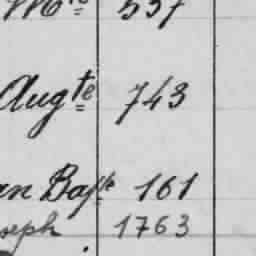 537
Augte 743
an Bapte 161
seph 1763